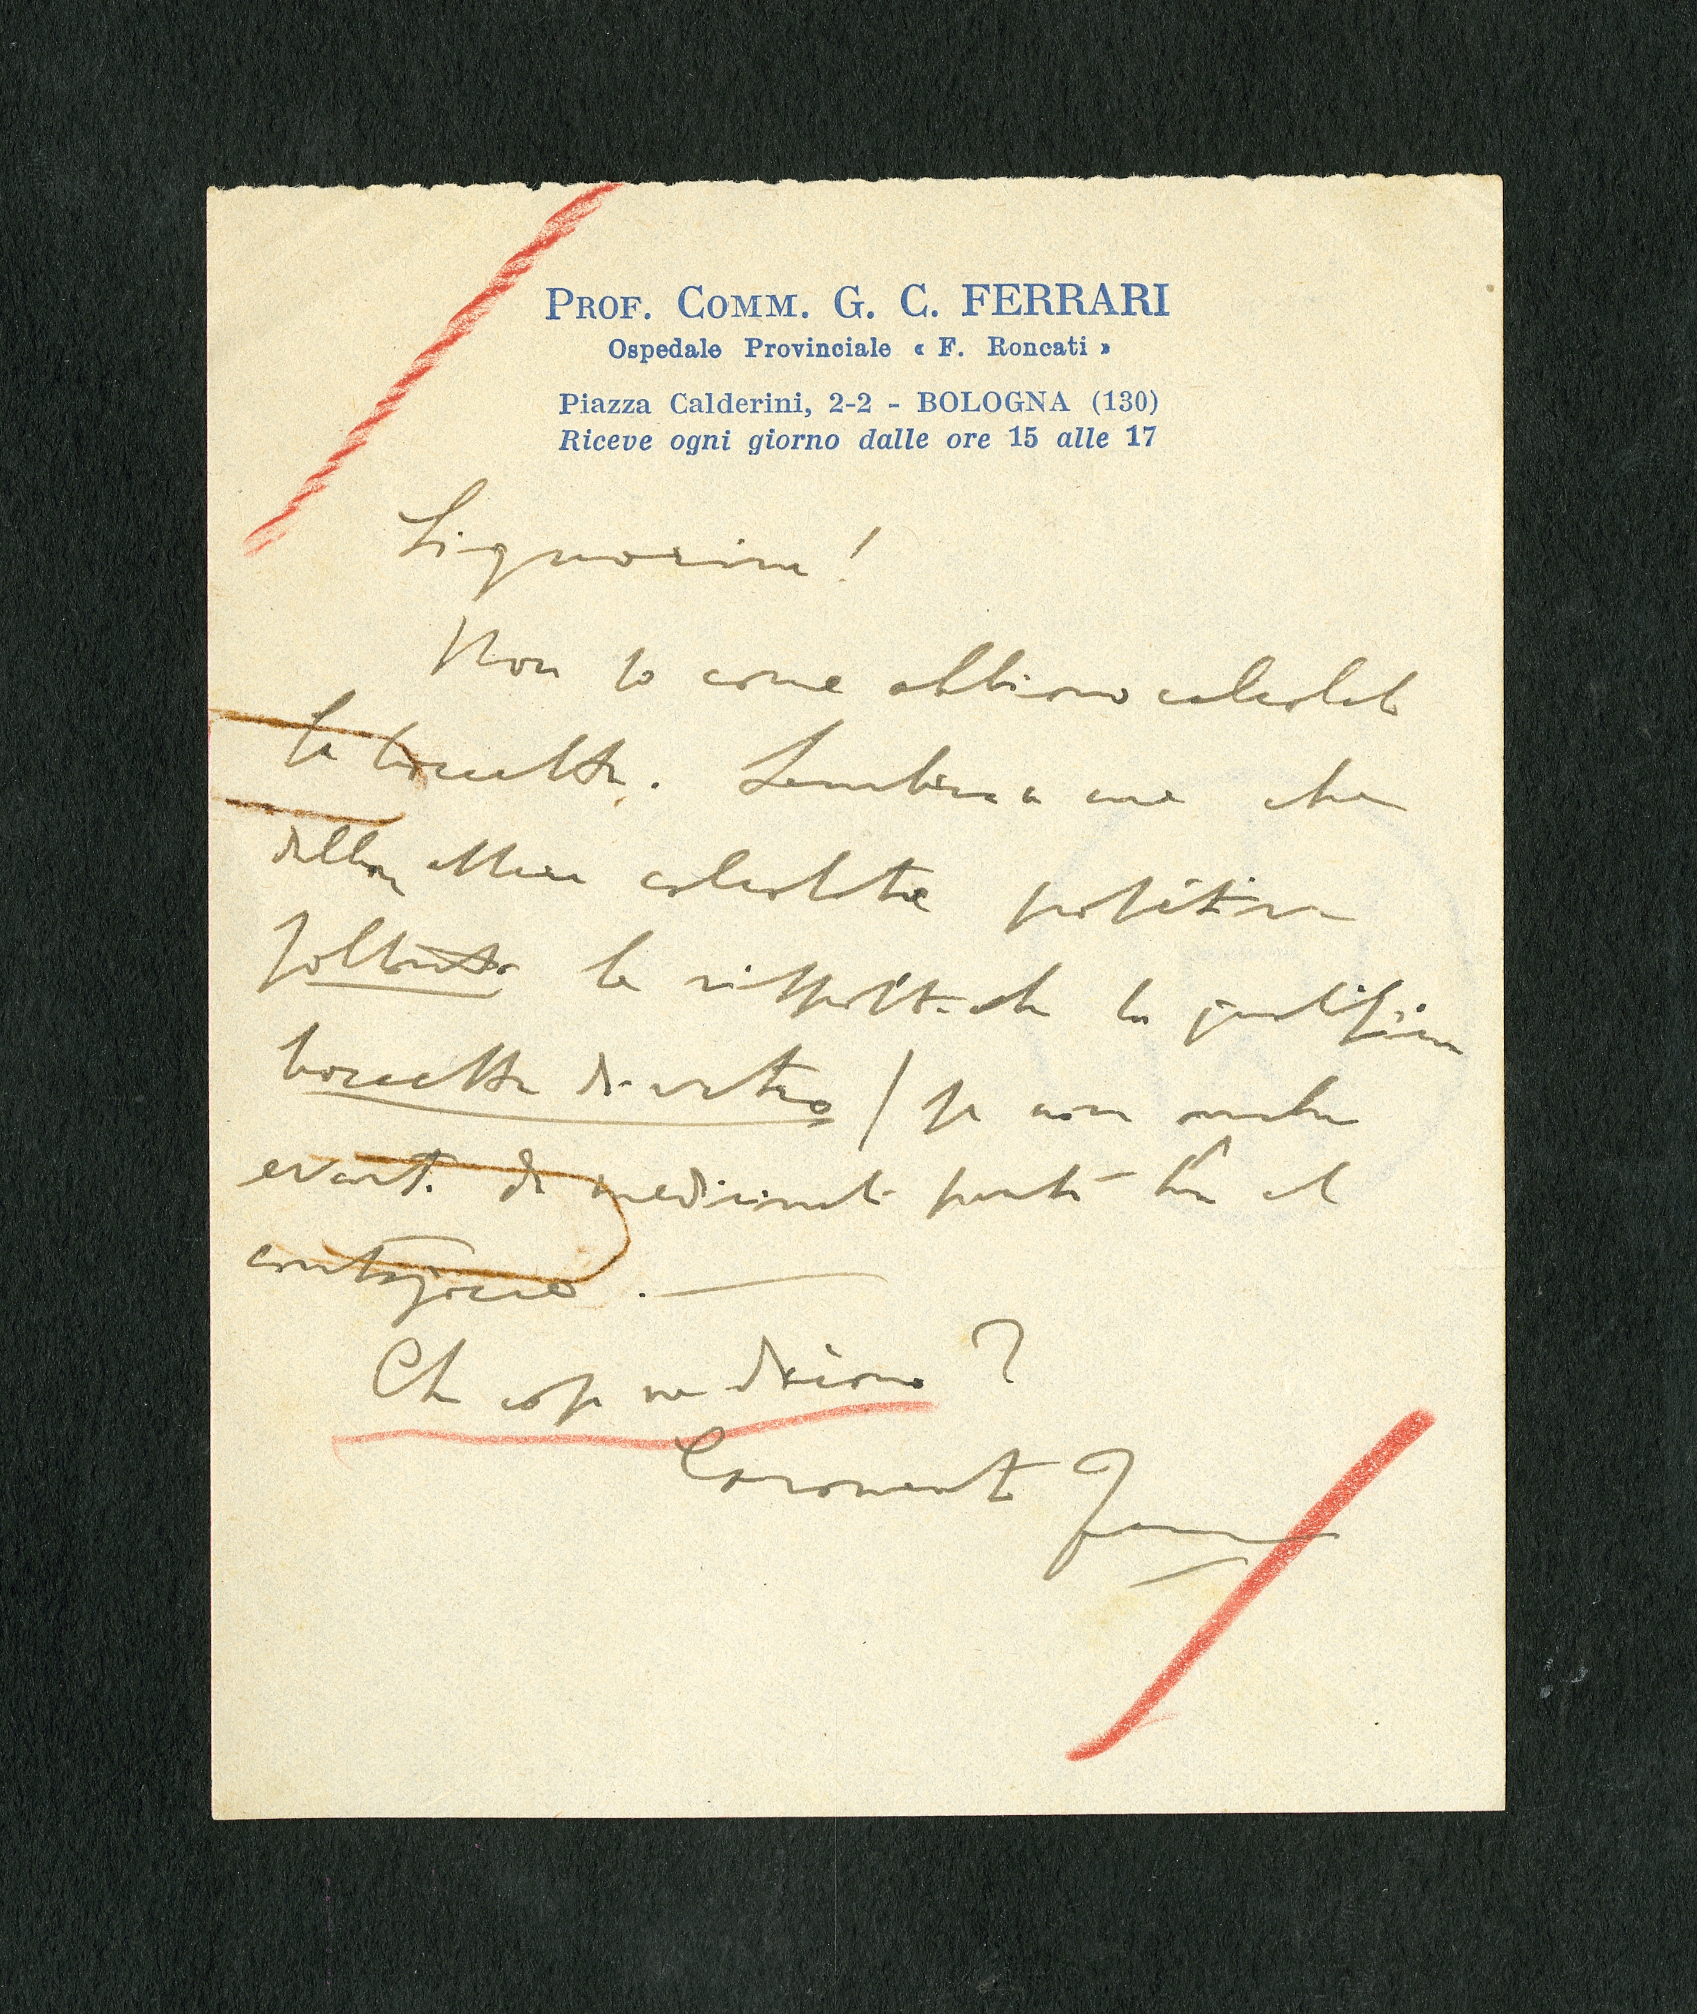 PROF. COMM. G. C. FERRARI
Ospedale Provinciale « F. Roncati »
Piazza Calderini, 2-2 - BOLOGNA (130)
Riceve ogni giorno dalle ore 15 alle 17
Signorina!
Non so come abbiamo calcolato
la boccetta. Sembra a me che
calcolata positiva
soltanto la risposta che la qualifica
boccetta di vetro / se non
di medicinali
contagocce.
Che cosa ne dicono?
Caramente Ferrari